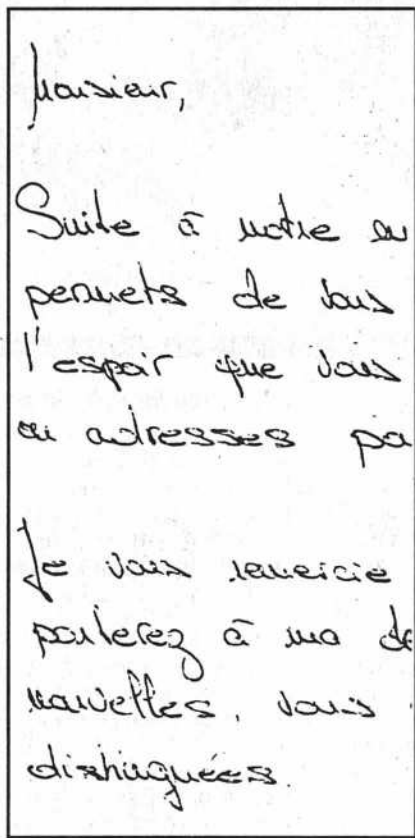 Monsieur,
Suite à notre
permets de vous
l'espoir que vous
ou adresses
Je vous remercie
porterez à ma
nouvelles, vous
distinguées.